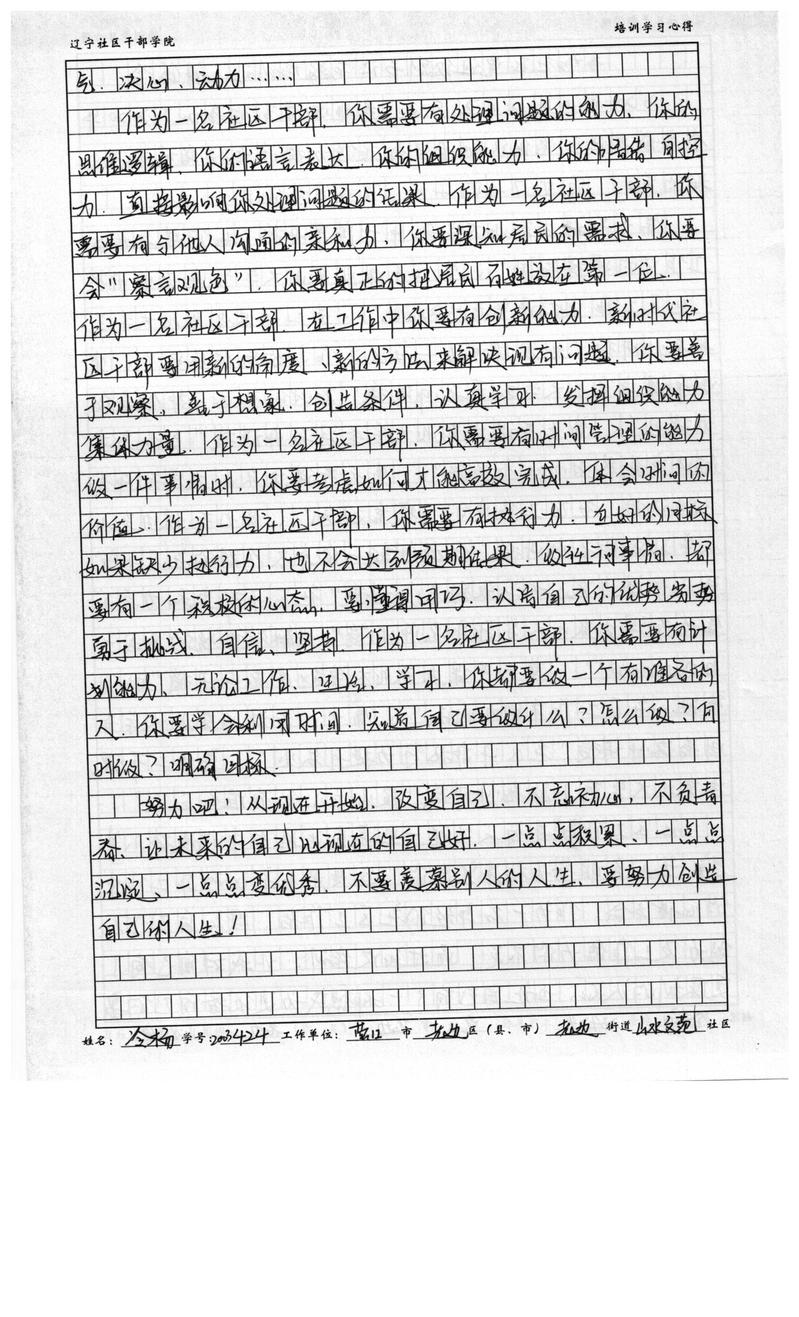 辽宁社区干部学院
培训学习心得
气、决心、动力……
作为一名社区干部，你需要有处理问题的能力，你的
思维逻辑，你的语言表达，你的组织能力，你的情绪自控
力，直接影响你处理问题的结果。作为一名社区干部，你
需要有与他人沟通的亲和力，你要深知居民的需求，你要
会“察言观色”，你要真正的把居民百姓放在第一位。
作为一名社区干部 在工作中你要有创新能力，新时代社
区干部要用新的角度、新的方法来解决现有问题，你要善
于观察，善于想象，创造条件，认真学习 发挥组织能力
集体力量。作为一名社区干部，你需要有时间管理的能力
做一件事情时，你要考虑如何才能高效完成，体会时间的
价值。作为一名社区干部，你需要有执行力，再好的目标
如果缺少执行力，也不会达到预期结果，做任何事前，都
要有一个积极的心态，要懂得用巧，认清自己的优势劣势
勇于挑战，自信、坚持。作为一名社区干部，你需要有计
划能力，无论工作、生活、学习，你都要做一个有准备的
人，你要学会利用时间，知道自己要做什么？怎么做？何
时做？明确目标。
努力吧，从现在开始，改变自己，不忘初心，不负青
春，让未来的自己比现在的自己好，一点点积累、一点点
沉淀、一点点变优秀，不要羡慕别人的人生，要努力创造
自己的人生！
姓名：冷杨 学号：2003424 工作单位：营口 市 老边 区（县、市） 老边 街道 山水文苑 社区